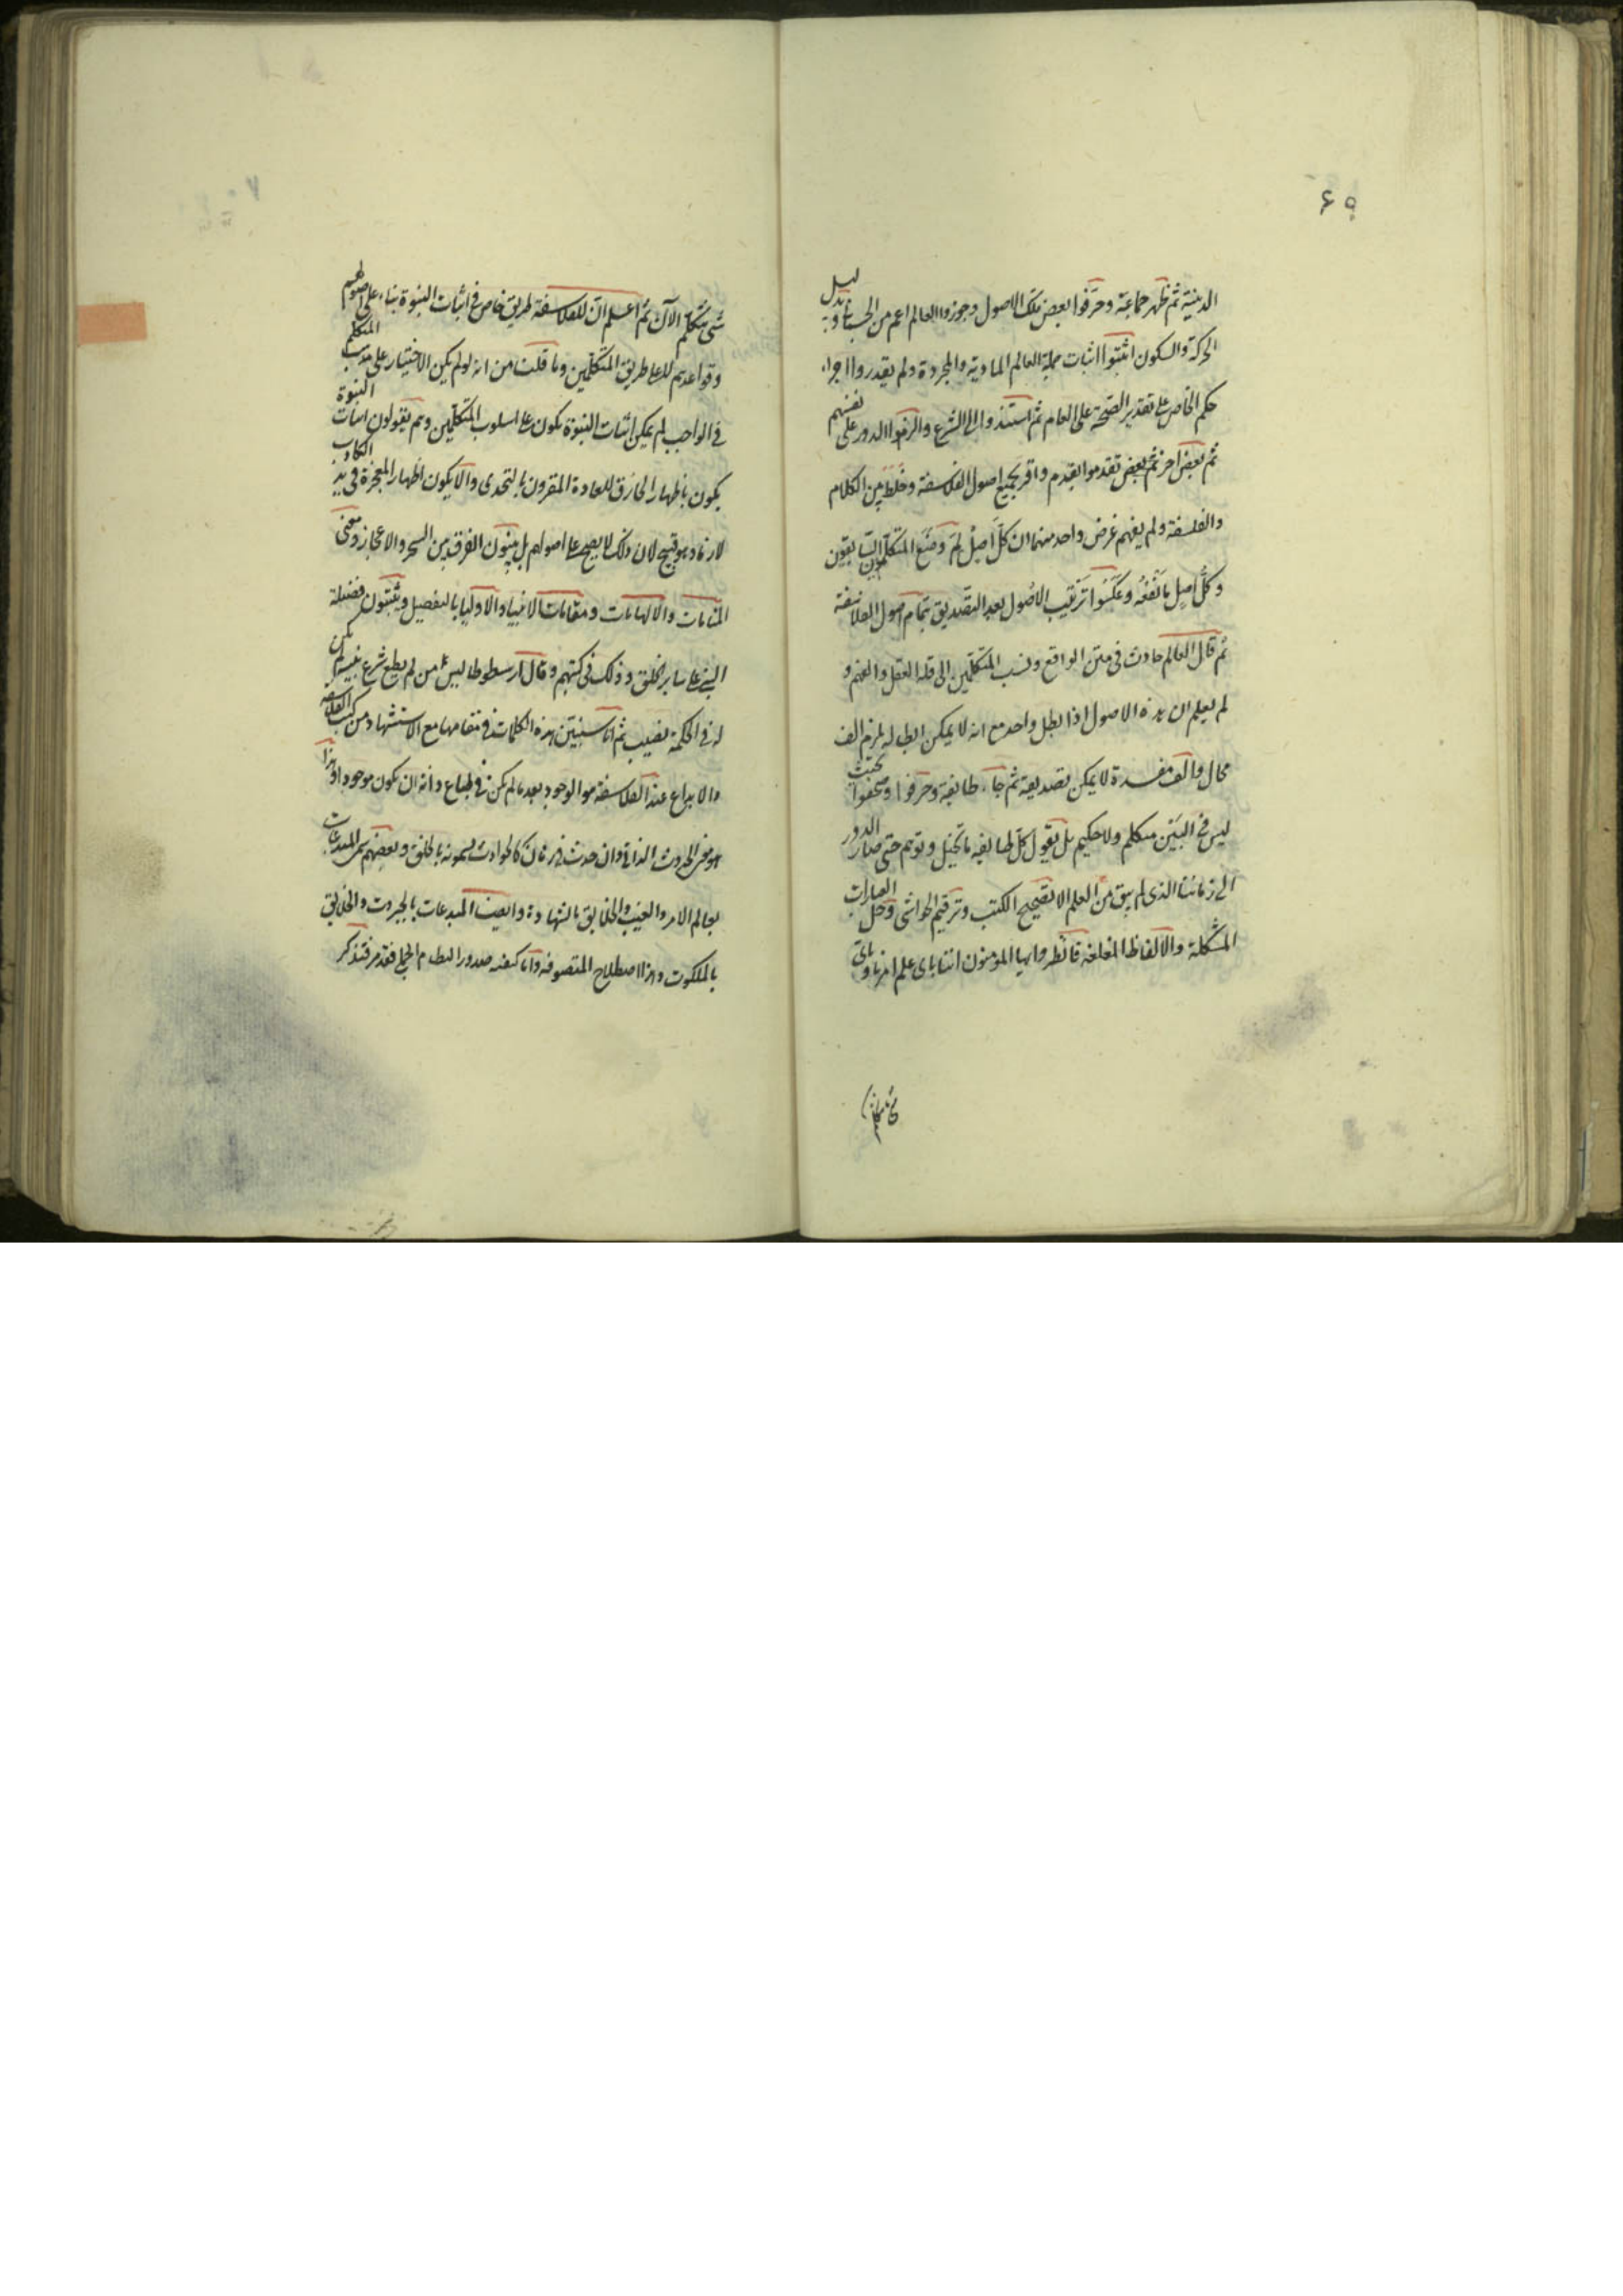 ۶۵
الدينية ثم ظهر جماعة وحرّفوا بعض تلك الاصول وجوزوا العالم اعم من
الحركة والسكون اثبتوا اثبات جملة العالم المادية والمجردة ولم يقدروا اجراء
حكم الخاص على تقدير الصحة على العام ثم استندوا الى الشرع والزموا الدور على نفسهم
ثم بعض اخر ثم بعض تقدموا بقدم واقر بجميع اصول الفلاسفة وخلط بين الكلام
والفلسفة ولم يفهم غرض واحد منهما ان كل اصل لم وضع المتكلمون السابقون
وكل اصل ما نفعه وعكسوا ترتيب الاصول بعد التصديق بتمام اصول الفلاسفة
ثم قال العالم حادث في متن الواقع ونسب المتكلمين الى قلة العقل والفهم و
لم يعلم ان هذه الاصول اذا بطل واحد مع انه لا يمكن ابطاله يلزم الف
محال والف مفسدة لا يمكن تصديقه ثم جاء طايفة وحرفوا وصحفوا بحيث
ليس في البين متكلم ولا حكيم بل يقول كل طايفة ما تخيل وتوهم حتى صار الدور
الى زماننا الذي لم يبق من العلم الا تصحيح الكتب وترقيم الحواشي وحل العبارات
المشكلة والالفاظ المغلقة فانظروا ايها المؤمنون اننا باى علم امرنا وباى
شئ نتكلم الآن ثم اعلم ان للفلاسفة طريق خاص في اثبات النبوة بناء على اصولهم
وقواعدهم لا على طريق المتكلمين وما قلت من انه لو لم يكن الاختيار على مذهب المتكلم
في الواجب لم يمكن اثبات النبوة يكون على اسلوب المتكلمين وهم يقولون اثبات النبوة
يكون باظهار الخارق للعادة المقرون بالتحدى والا يكون اظهار المعجزة في يد الكاذب
وهو قبيح لان ذلك لا يصح على اصولهم بل يبينون الفرق بين السحر والاعجاز ومعنى
المنامات والالهامات ومقامات الانبياء والاوليا بالتفصيل ويثبتون فضيلة
النبي على ساير الخلق وذلك في كتبهم وقال ارسطوطاليس من لم يطع شرع نبيه لم يكن
له في الحكمة نصيب ثم انا سنبين هذه الكلمات في مقامها مع الاستشهاد من كتب الفلاسفة
والابداع عند الفلاسفة هو الوجود بعد ما لم يكن في طباع ذاته ان يكون موجودا وهذا
هو معنى الحدوث الذاتي وان حدث في زمان كالحوادث يسمونه بالخلق وبعضهم سمى المبدعات
بعالم الامر والغيب والخلايق بالشهادة وايضا المبدعات بالجبروت والخلايق
بالملكوت وهذا اصطلاح المتصوفة واما كيفية صدور النظام الجملي فقد مر فتذكر